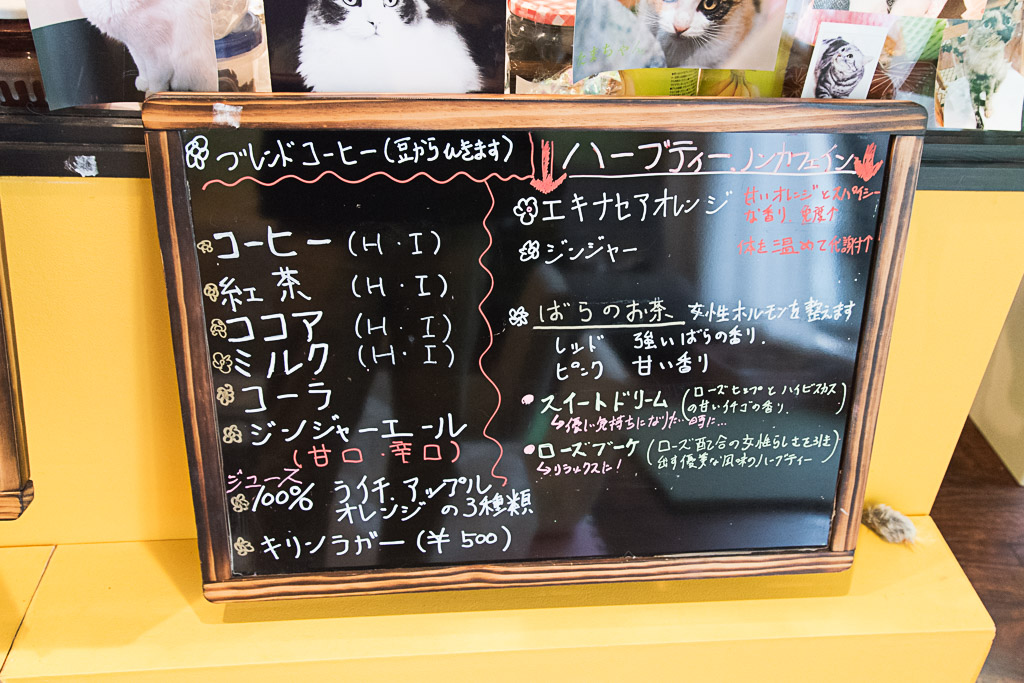 ブレンドコーヒー(豆からひきます)
コーヒー (H・I)
紅茶 (H・I)
ココア (H・I)
ミルク (H・I)
コーラ
ジンジャーエール
(甘口・辛口)
ジュース
100% ライチ.アップル
オレンジの3種類
キリンラガー(¥500)
ハーブティー.ノンカフェイン
エキナセアオレンジ
甘いオレンジとスパイシー
な香り.免疫↑
ジンジャー
体を温めて代謝↑
ばらのお茶 女性ホルモンを整えます
レッド 強いばらの香り.
ピンク 甘い香り
スイートドリーム (ローズヒップとハイビスカス
の甘いイチゴの香り.)
↳優しい気持ちになりたい時に…
ローズブーケ (ローズ配合の女性らしさを引き
出す優美な風味のハーブティー)
↳リラックスに!